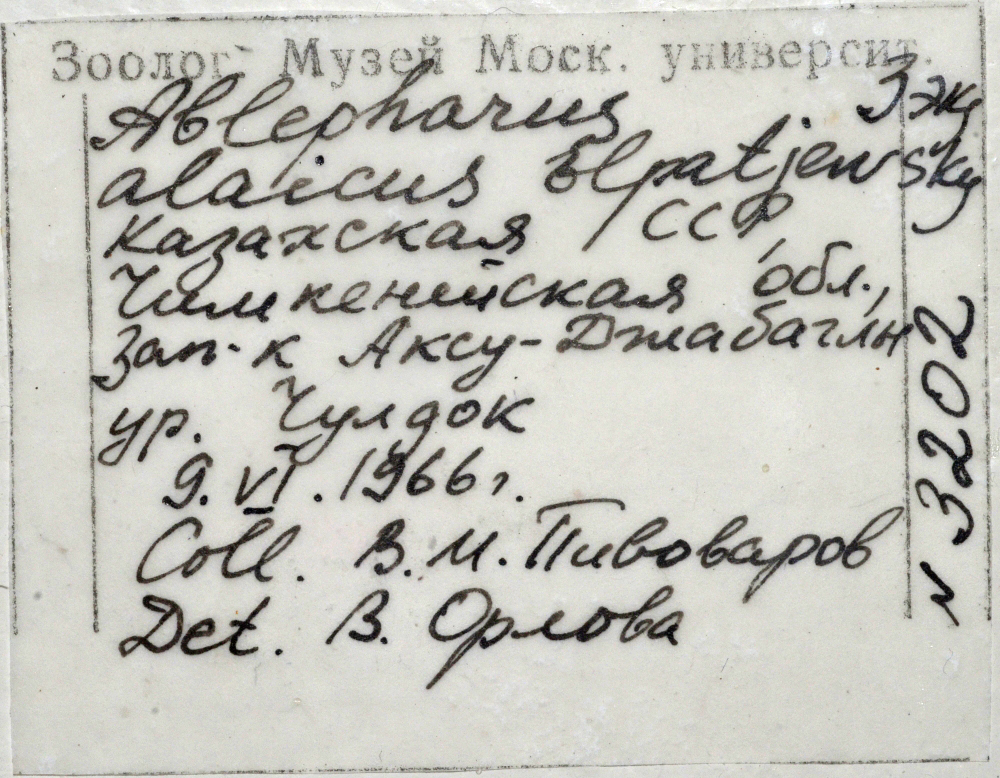 Зоолог. Музей Моск. университ.
Ablepharus 3 экз
alaicus Elpatjewsky
Казахская ССР
Чимкентская обл.,
зап-к Аксу-Джабаглы
ур. Чулдок
9.VI.1966г.
Coll. В.М.Пивоваров
Det. В. Орлова
N 3202